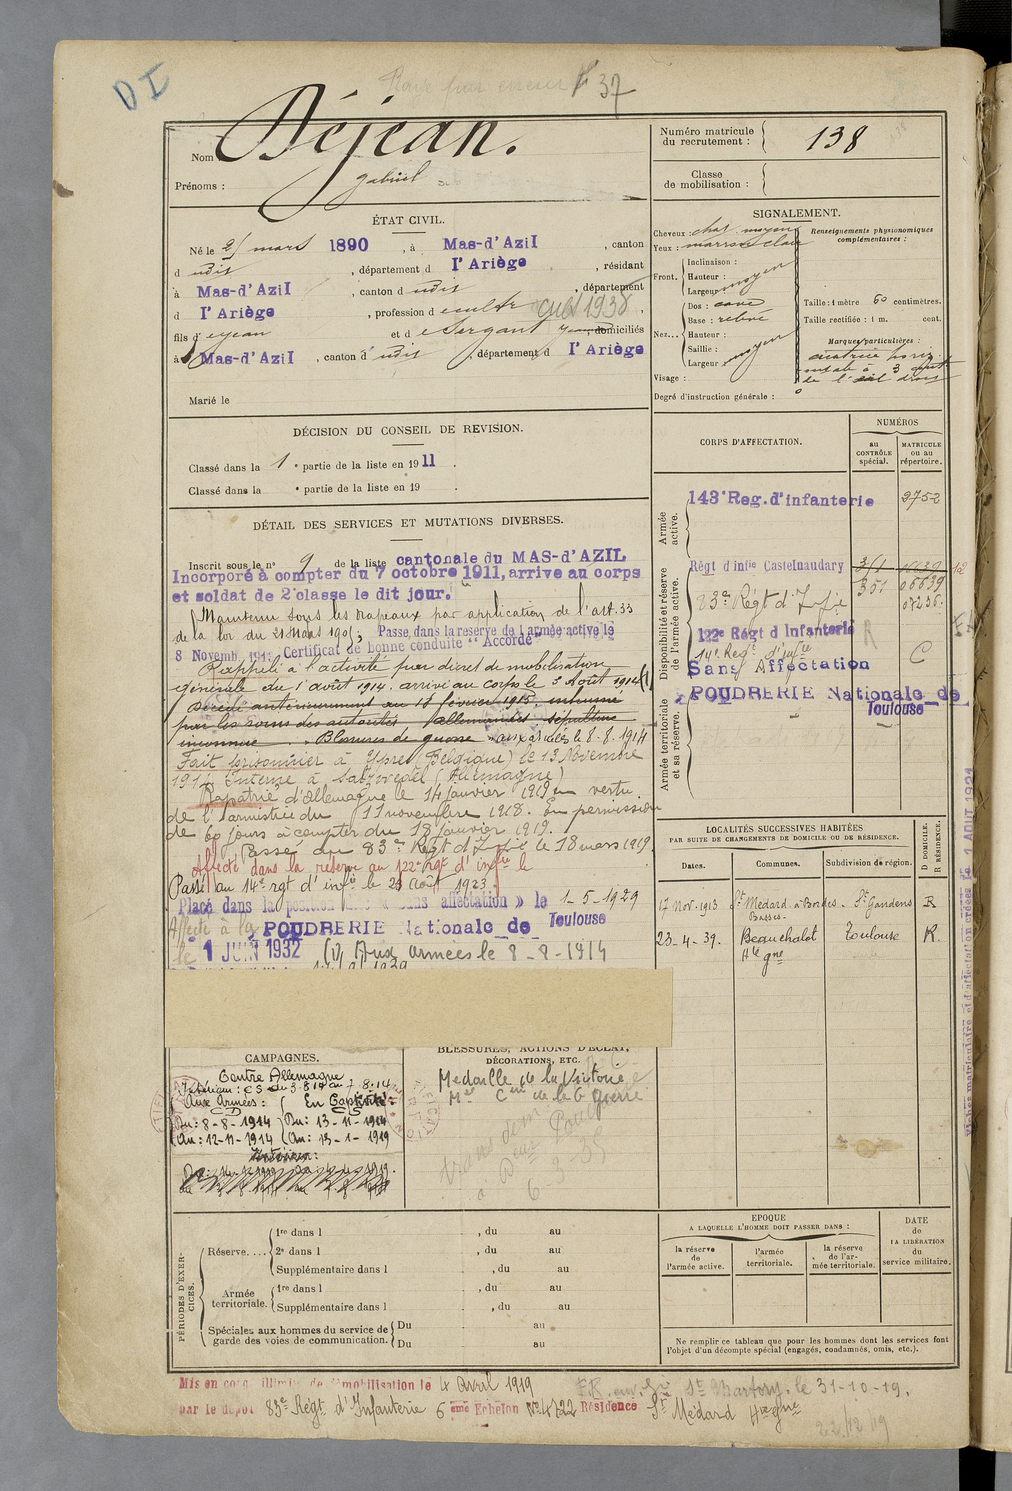 DI
Rayé par erreur F 37
Nom Déjean.
Prénoms : Gabriel
Numéro matricule du recrutement : 138
Classe de mobilisation :
ÉTAT CIVIL.
Né le 25 mars 1890, à Mas-d'Azil, canton
d udit, département d l'Ariège, résidant
à Mas-d'Azil, canton d udit, département
d l'Ariège, profession d e cultr
cult 1938
fils d' e Jean et d e Sergant domiciliés
à Mas-d'Azil, canton d udit, département d l'Ariège
Marié le
SIGNALEMENT.
Cheveux : chat. moyens
Yeux : marron clair
Renseignements physionomiques complémentaires :
Front. Inclinaison :
Hauteur :
Largeur : moyen
Nez... Dos : cave
Base : relevé
Hauteur :
Saillie : moyen
Largeur :
Visage :
Taille : 1 mètre 60 centimètres.
Taille rectifiée : 1 m. cent.
Marques particulières :
cicatrice horiz.
à 3 cent
de l'œil droit
Degré d'instruction générale :
DÉCISION DU CONSEIL DE REVISION.
Classé dans la 1e partie de la liste en 1911.
Classé dans la e partie de la liste en 19 .
DÉTAIL DES SERVICES ET MUTATIONS DIVERSES.
Inscrit sous le n° 9 de la liste cantonale du MAS-d'AZIL
Incorporé à compter du 7 octobre 1911, arrive au corps
et soldat de 2e classe le dit jour.
Maintenu sous les drapeaux par application de l'art. 33
de la loi du 21 Mars 1905; Passé dans la réserve de l'armée active le
8 Novemb. 1913 Certificat de bonne conduite "Accordé"
Rappelé à l'activité par décret de mobilisation
générale du 1 août 1914. arrivé au corps le 3 Août 1914 (1)
Décédé antérieurement au 18 février 1915, inhumé
par les soins des autorités allemandes, sépulture
inconnue. Blessures de guerre aux armées le 8-8-1914
Fait prisonnier à Ypres (Belgique) le 13 Novembre
1914 Interné à Salzwedel (Allemagne)
Rapatrié d'Allemagne le 14 janvier 1919 en vertu
de l'armistice du 11 novembre 1918. En permission
de 60 jours à compter du 18 janvier 1919.
Passé du 83e Regt d'Infie le 18 mars 1919
Affecté dans la réserve au 122e rgt d'infie le
Passé au 14e rgt d'infie le 23 Août 1923.
Placé dans la position dite « sans affectation » le 1-5-1929
Affecté à la POUDRERIE Nationale de Toulouse
le 1 JUIN 1932 (1) Aux armées le 8-8-1914
CORPS D'AFFECTATION.
NUMÉROS
au CONTRÔLE spécial.
MATRICULE ou au répertoire.
Armée active.
143e Reg. d'infanterie 9752
Disponibilité et réserve de l'armée active.
Régt d'infie Castelnaudary
351 06639
83e Régt d'Infie
122e Régt d'Infanterie R
14e Reg. d'infie C
Sans Affectation
Armée territoriale et sa réserve.
POUDRERIE Nationale de Toulouse
LOCALITÉS SUCCESSIVES HABITÉES
PAR SUITE DE CHANGEMENTS DE DOMICILE OU DE RÉSIDENCE.
Dates.
Communes.
Subdivision de région.
D DOMICILE. R RÉSIDENCE.
17 Nov. 1913 St Médard à Bordes-Basses - St Gaudens R
23-4-39. Beauchalot Hte Gne Toulouse R.
fiches matriculaire et d'affectation créées le 1 AOUT 1924
CAMPAGNES.
Contre Allemagne
Intérieur : CS du 3-8-14 au 7-8-14
Aux Armées : CD
En Captivité : CS
Du : 8-8-1914 Du : 13-11-1914
Au : 12-11-1914 Au : 13-1-1919
Intérieur :
BLESSURES, ACTIONS D'ÉCLAT,
DÉCORATIONS, ETC.
Médaille de la Victoire
Mlle Cive de la Gde Guerre
6-3-39
PÉRIODES D'EXERCICES.
Réserve.... 1re dans l , du au
2e dans l , du au
Supplémentaire dans l , du au
Armée territoriale. 1re dans l , du au
Supplémentaire dans l , du au
Spéciales aux hommes du service de garde des voies de communication. Du au
Du au
EPOQUE
A LAQUELLE L'HOMME DOIT PASSER DANS :
la réserve de l'armée active.
l'armée territoriale.
la réserve de l'armée territoriale.
DATE de LA LIBÉRATION du service militaire.
Ne remplir ce tableau que pour les hommes dont les services font
l'objet d'un décompte spécial (engagés, condamnés, omis, etc.).
Mis en congé illimité de démobilisation le 4 Avril 1919
par le dépôt 83e Régt d'Infanterie 6 ème Echelon No 4722 Résidence St Médard Hte Gne
St Martory. le 31-10-19.
22/12/19